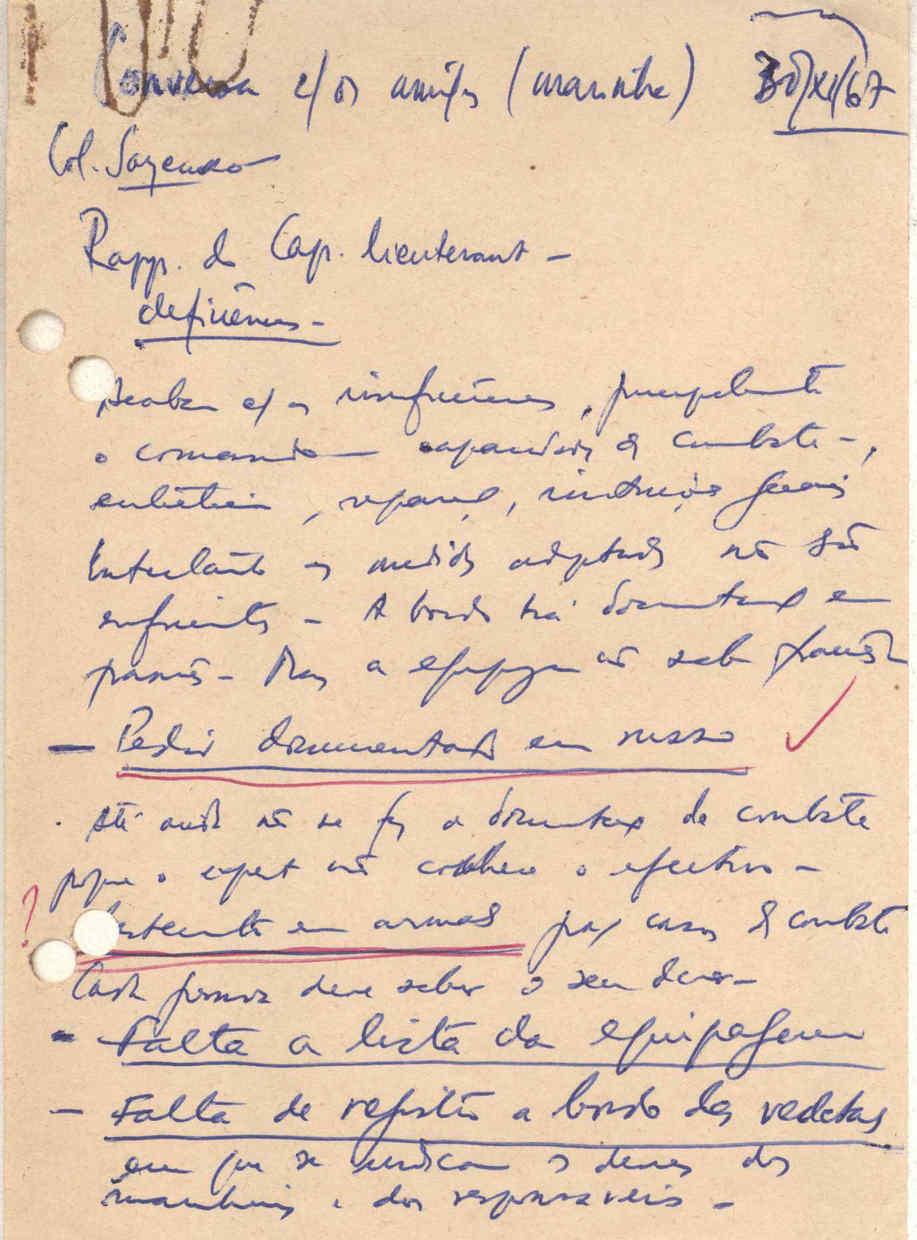 Conversa c/ os amigos (marinha) 30/XI/67
Col.
Rapp. do Cap. lieutenant –
deficiências –
Acabar c/ as insuficiências, principalmente
o comando – capacidade de combate –,
, reparação, instruções gerais
Entretanto as medidas adoptadas não são
suficientes – A bordo há documentação em
francês – Mas a equipagem não sabe francês
– Pedir documentação em russo
. Até aqui não se fez a documentação de combate
porque o expert não conhece o efectivo –
em armas para casos de combate
Cada pessoa deve saber o seu dever –
– Falta a lista da equipagem
– Falta de registo a bordo das vedetas
em que se indicam os deveres dos
marinheiros e dos responsáveis –